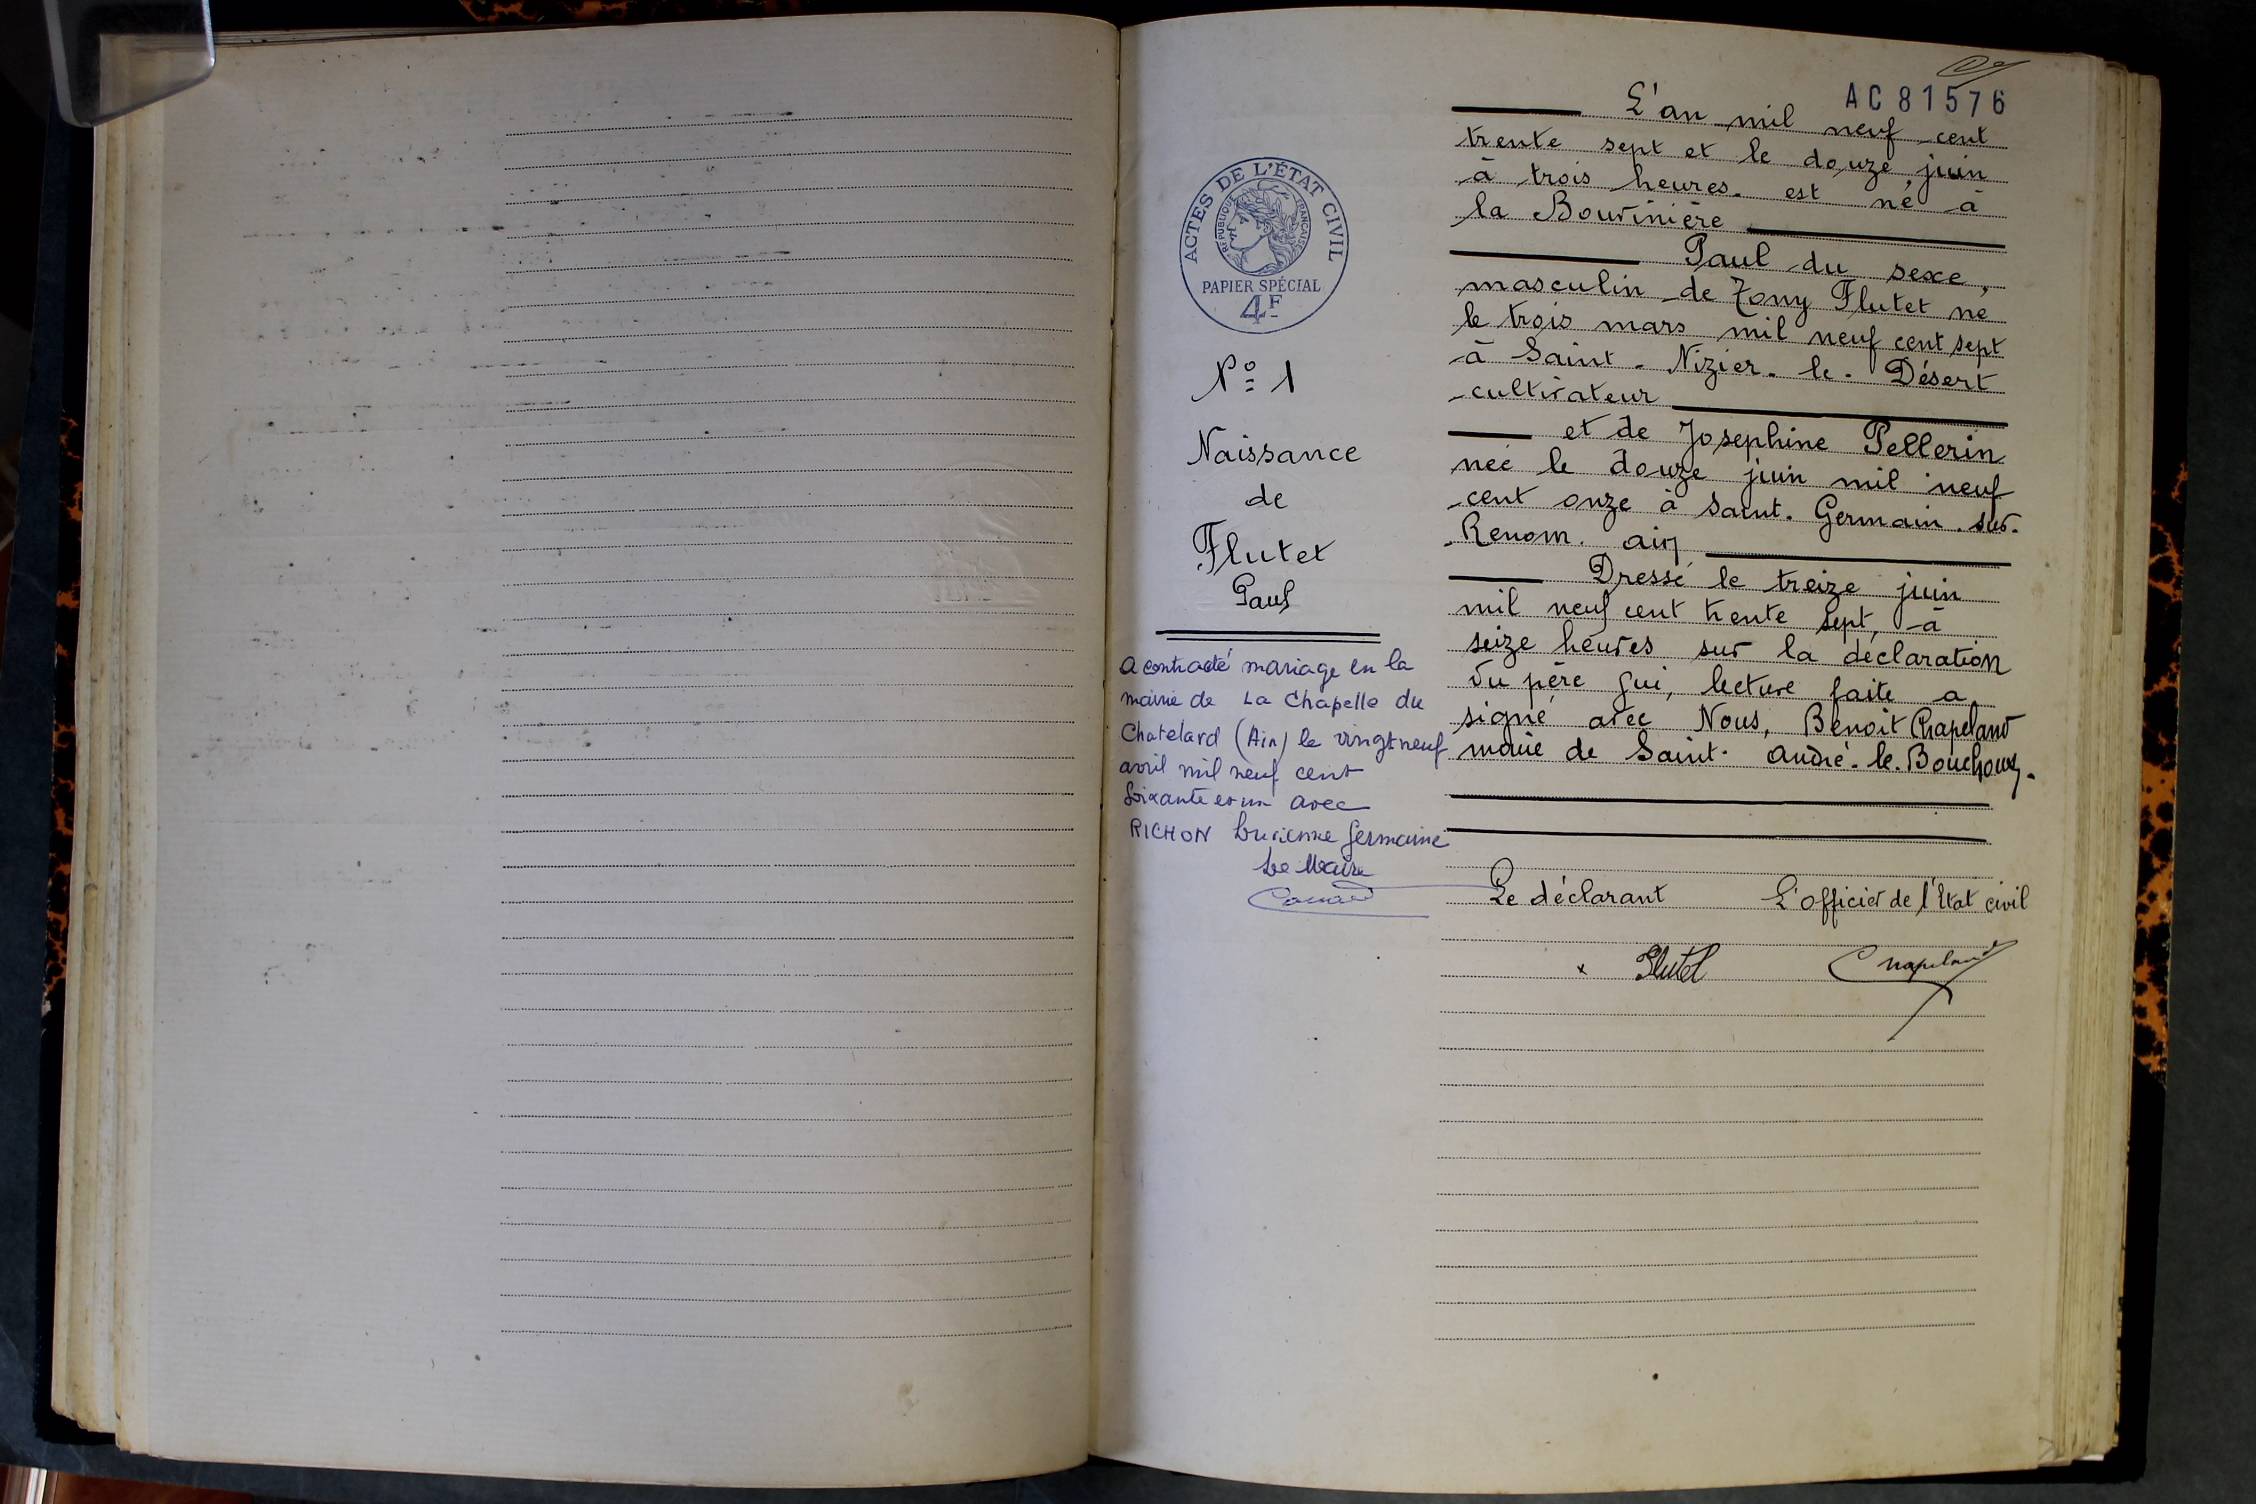 AC 81576
ACTES DE L'ÉTAT CIVIL
RÉPUBLIQUE FRANÇAISE
PAPIER SPÉCIAL
4F
N° 1
Naissance
de
Flutet
Paul
a contracté mariage en la
mairie de La Chapelle du
Chatelard (Ain) le vingt neuf
avril mil neuf cent
soixante et un avec
RICHON Lucienne Germaine
Le Maire
L'an mil neuf cent
trente sept et le douze juin
à trois heures. est né à
la Bouvinière
Paul du sexe
masculin de Tony Flutet né
le trois mars mil neuf cent sept
à Saint. Nizier. le. Désert
cultivateur
et de Josephine Pellerin
née le douze juin mil neuf
cent onze à Saint. Germain. sur.
Renom. ain
Dressé le treize juin
mil neuf cent trente sept, à
seize heures sur la déclaration
du père qui, lecture faite a
signé avec Nous, Benoit Chapeland
maire de Saint. André. le. Bouchoux.
Le déclarant L'officier de l'Etat civil
x Flutet Chapeland